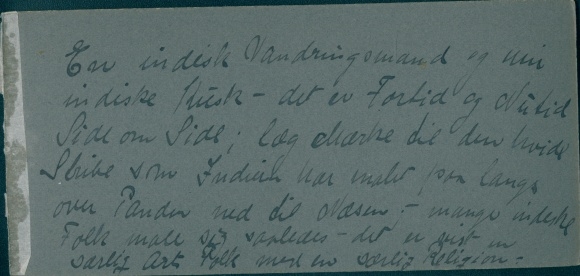 En indisk Vandringsmand og min
indiske Kusk - det er Fortid og Nutid
Side om Side; læg Mærke til den hvide
Stribe som Indien har malt paa langs
over Panden ned til Næsen; - mange indiske
Folk male sig saaledes - det er vist en
særlig Art Folk med en særlig Religion -